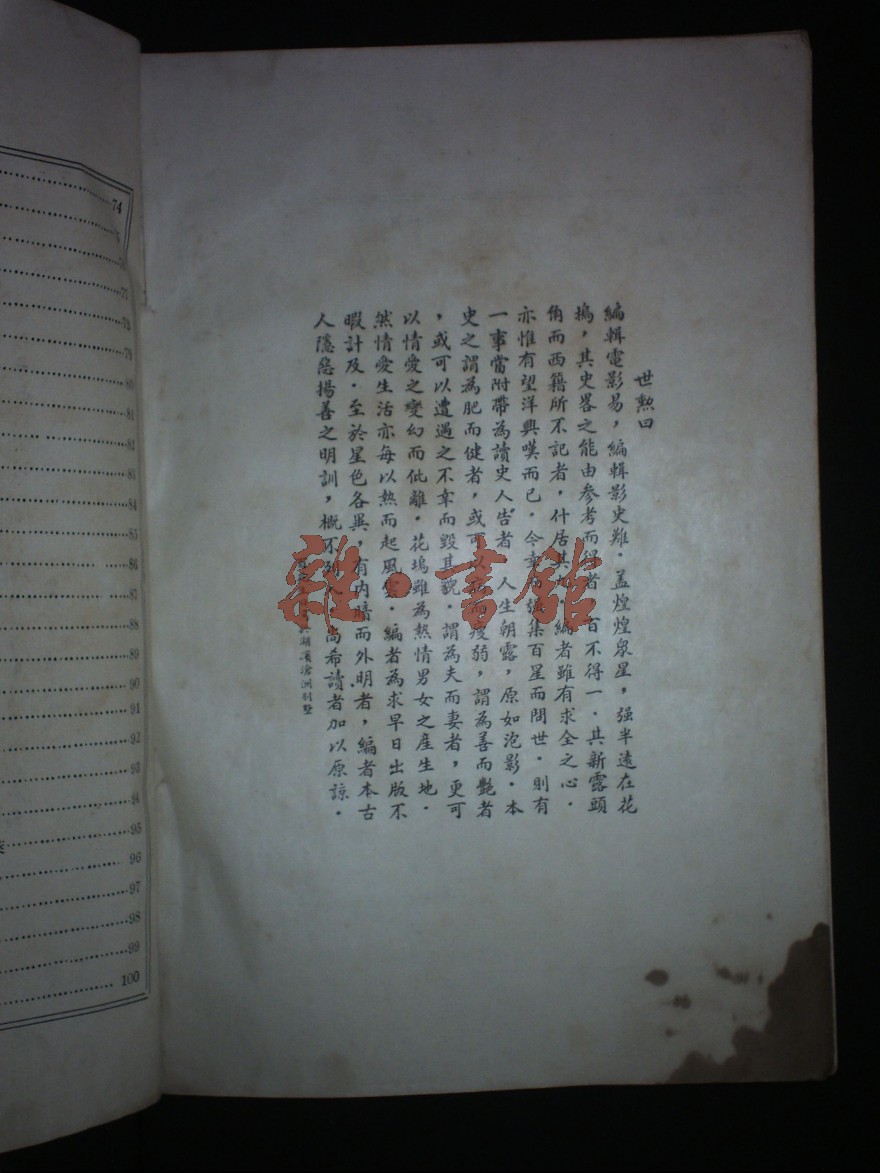 世勲曰
編輯電影易,編輯影史難.盖煌煌衆星,强半遠在花
塢,其史畧之能由参考而得者,百不得一.其新露頭
角而西籍所不記者,什居其.編者雖有求全之心.
亦惟有望洋興嘆而已.今幸集百星而問世.則有
一事當附帶為讀史人告者,人生朝露,原如泡影.本
史之謂為肥而健者,或可以病而瘦弱,謂為善而艷者
,或可以遭遇之不幸而毀其貌.謂為夫而妻者,更可
以情愛之變幻而仳離.花塢雖為熱情男女之産生地.
然情愛生活亦每以熱而起風雲.編者為求早日出版不
暇計及.至於星色各異,有内暗而外明者,編者本古
人隱惡揚善之明訓,概不列入尚希讀者加以原諒.
湖濱滄洲别墅
雜·書館
74
77
78
79
80
81
82
83
84
85
86
87
88
89
90
91
92
93
94
95
96
97
98
99
100